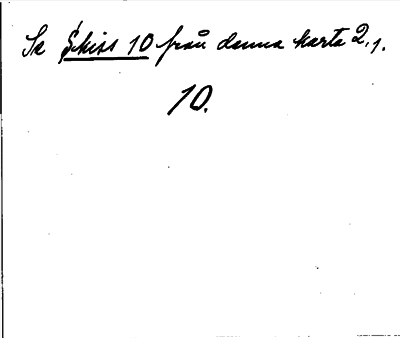 Se Skiss 10 från denna karta 2.1.
10.